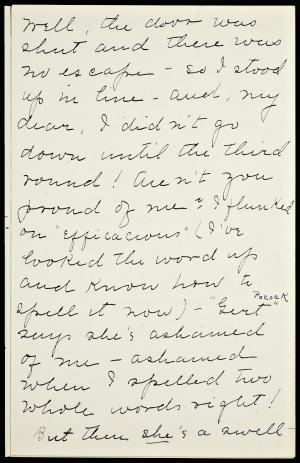 Well, the door was
shut and there was
no escape - so I stood
up in line - and, my
dear, I didn't go
down until the third
round! Aren't you
proud of me? I flunked
on "Efficacious" (I've
looked the word up
and know how to
spell it now) - "Gert"
Pocock
says she's ashamed
of me - ashamed
when I spelled two
whole words right!
But then she's a swell -